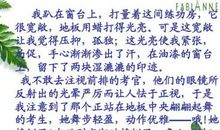 FABIANNE
我趴在窗台上，打量着这间练功房，它
很宽敞，地板用蜡打得光亮。可是这宽敞
让我觉得压抑，孤独；这光亮使我紧张，
局促，手心渐渐渗出了汗，在油漆的窗台
上，留下了两块湿漉漉的印迹。
我不敢去注视前排的考官，他们的眼镜所
反射出的光晕严厉而让人怯于正视，于是
我注意到了那个正站在地板中央翩翩起舞
的考生，她舞步轻盈，动作优雅——哦！我